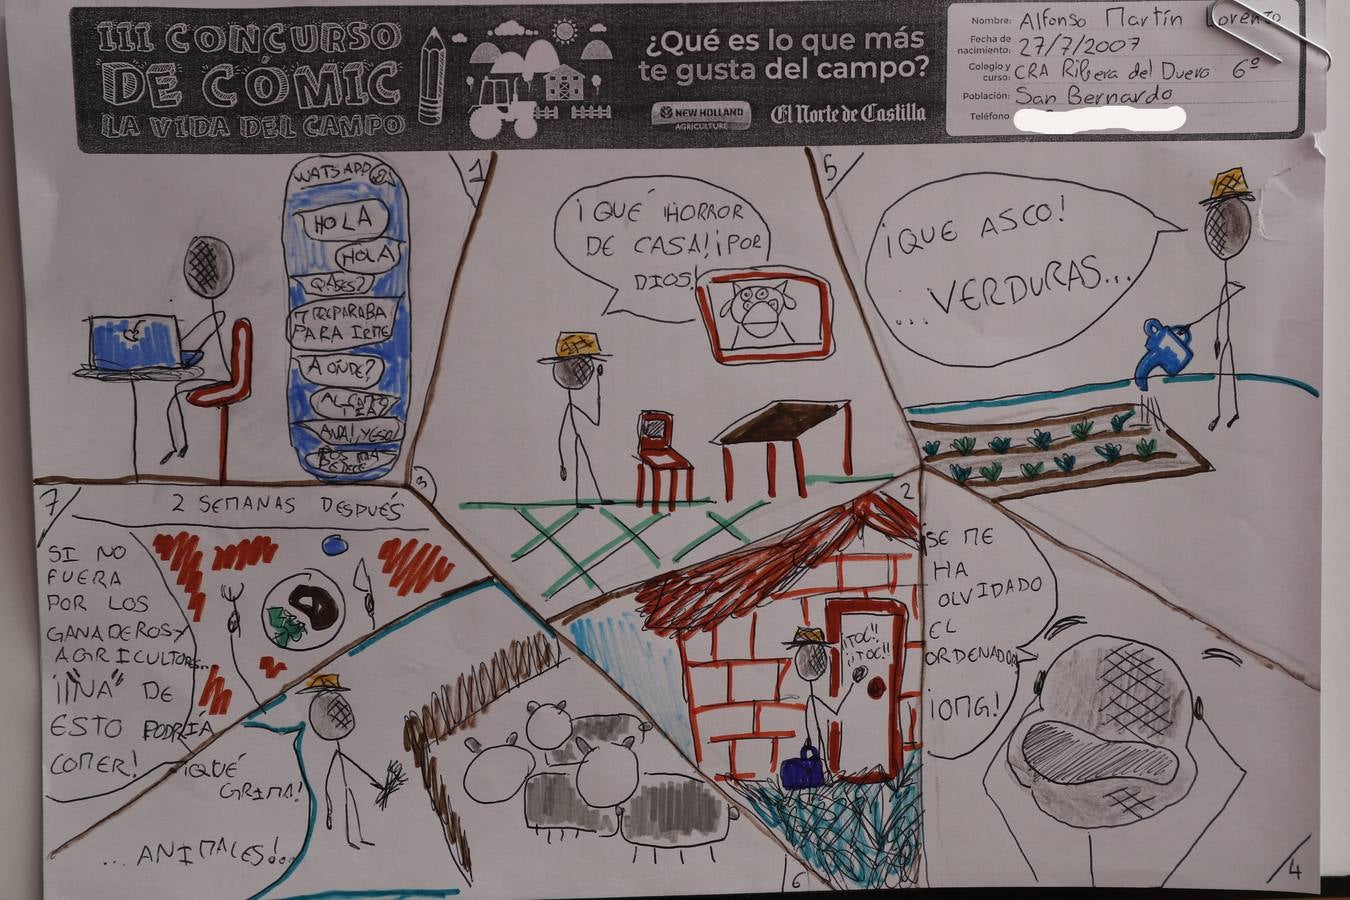 III CONCURSO
DE CÓMIC
LA VIDA DEL CAMPO
¿Qué es lo que más
te gusta del campo?
NEW HOLLAND
AGRICULTURE
El Norte de Castilla
Nombre: Alfonso Martín Lorenzo
Fecha de
nacimiento: 27/7/2007
Colegio y
curso: CRA Ribera del Duero 6º
Población: San Bernardo
Teléfono
1
WATSAPP
HOLA
HOLA
QASES?
M PREPARABA
PARA IRME
A ONDE?
AL CAMPO
TIA
ANDA! ¿Y ESO?
2
¡TOC!!
¡¡TOC!!
3
¡QUÉ HORROR
DE CASA! ¡POR
DIOS!
4
SE ME
HA
OLVIDADO
EL
ORDENADOR
¡OMG!
5
¡QUE ASCO!
... VERDURAS...
6
¡QUÉ
GRIMA!
... ANIMALES!..
7
2 SEMANAS DESPUÉS
SI NO
FUERA
POR LOS
GANADEROS Y
AGRICULTORES..
¡¡"NA" DE
ESTO PODRÍA
COMER!